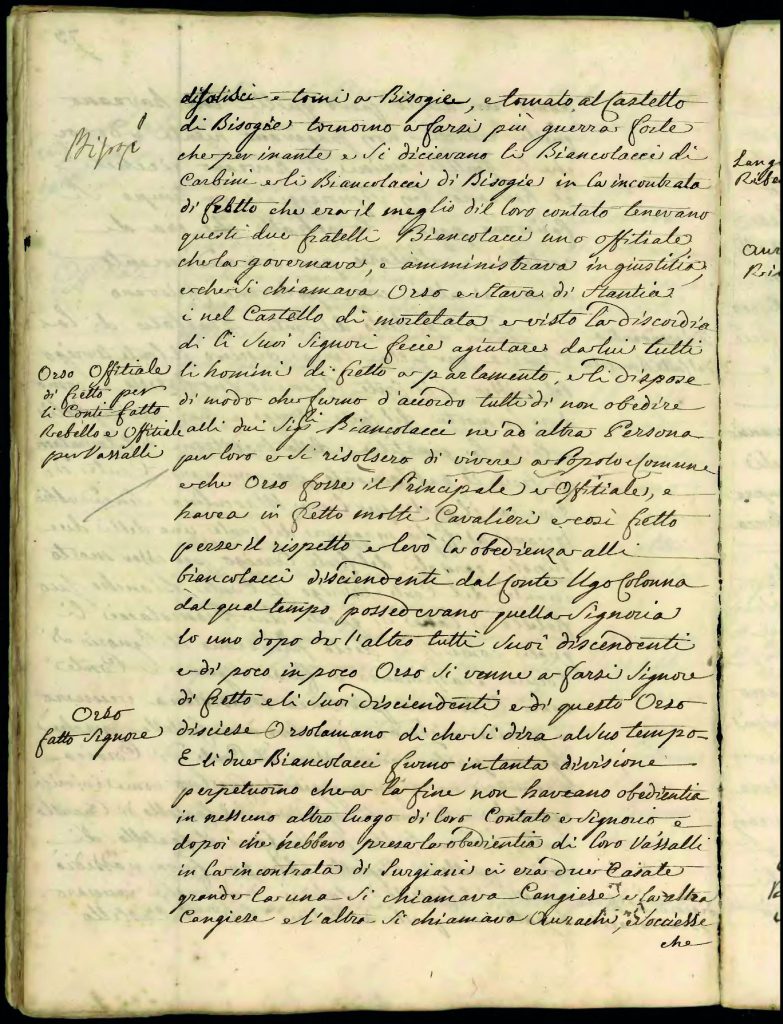 Bisogi
Orso Offitiale
di fretto per
li Conti fatto
Rebello e Offitiale
per Vassalli
Orso
fatto Signore
e torni a Bisogie, e tornato al Castello
di Bisogie tornorno a farsi più guerra forte
che per inante e si dicievano li Biancolacci di
Carbini e li Biancolacci di Bisogie in la incontrata
di fretto che era il meglio dil loro contato tenevano
questi due fratelli Biancolacci uno offitiale
che la governava, e amministrava in giustitia,
e che si chiamava Orso e stava di stantia
i nel Castello di mortetata e visto la discordia
di li suoi Signori fecie agiutare da lui tutti
li homini di fretto a parlamento, e li dispose
di modo che furno d'accordo tutti di non obedire
alli dui Sigri Biancolacci ne ad altra Persona
per loro e si risolsero di vivere a Popolo e Comune
e che Orso fosse il Principale e Offitiale, e
havea in fretto molti Cavalieri e cosi fretto
perse il rispetto e levò la obedienza alli
biancolacci disciendenti dal Conte Ugo Colonna
dal qual tempo possedevano quella Signoria
lo uno dopo de l'altro tutti suoi discendenti
e di poco in poco Orso si venne a farsi Signore
di fretto e li suoi disciendenti e di questo Orso
disciese Orsolamano di che si dira al suo tempo
E li due Biancolacci furno in tanta divisione
perpetuorno che a la fine non haveano obedientia
in nessuno altro luogo di loro Contato e Signorio e
dopoi che hebbero persa la obedientia di loro Vassalli
in la incontrata di Surgiani ci era due Casate
grande la una si chiamava Cangiese e la altra
Cangiese e l'altra si chiamava Aurachi, e soccesse
che